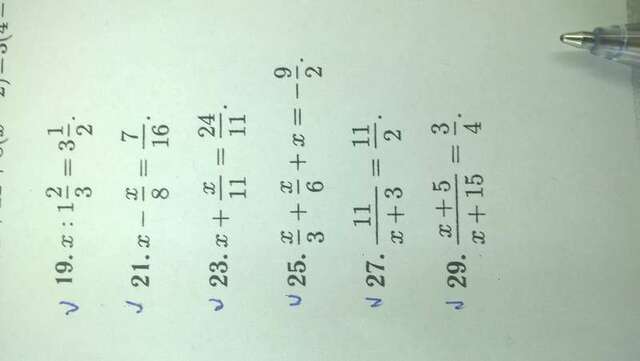 19. x : 1 2/3 = 3 1/2.
21. x − x/8 = 7/16.
23. x + x/11 = 24/11.
25. x/3 + x/6 + x = −9/2.
27. 11/(x + 3) = 11/2.
29. (x + 5)/(x + 15) = 3/4.